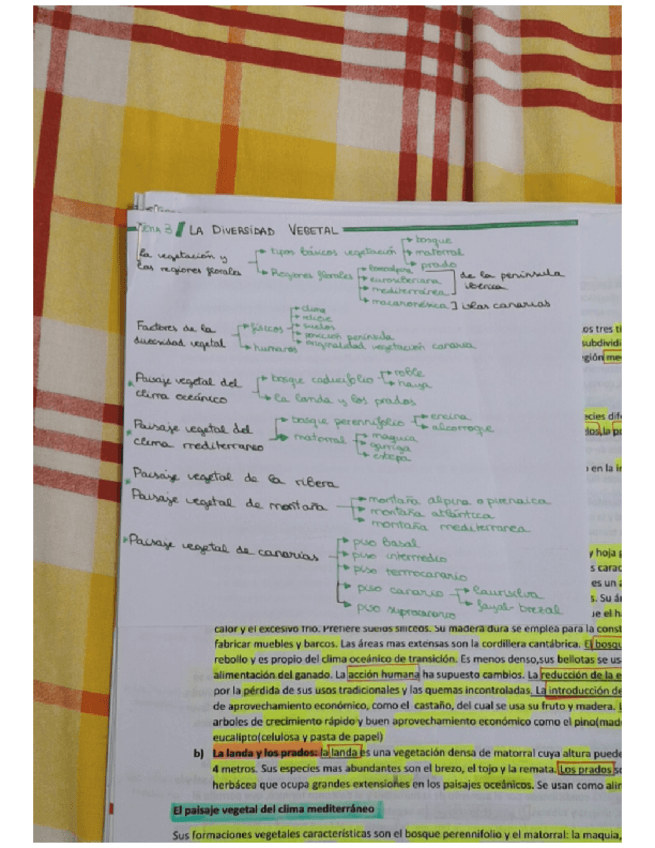 Tema 3 LA DIVERSIDAD VEGETAL
La vegetación y las regiones florales
tipos básicos vegetación
bosque
matorral
prado
Regiones florales
boreoalpina
eurosiberiana
mediterránea
de la península ibérica
macaronésica
islas canarias
Factores de la diversidad vegetal
físicos
clima
relieve
suelos
posición península
originalidad vegetación canaria
humanos
Paisaje vegetal del clima oceánico
bosque caducifolio
roble
haya
la landa y los prados
Paisaje vegetal del clima mediterraneo
bosque perennifolio
encina
alcornoque
matorral
maquia
garriga
estepa
Paisaje vegetal de la ribera
Paisaje vegetal de montaña
montaña alpina o pirenaica
montaña atlántica
montaña mediterranea
Paisaje vegetal de canarias
piso basal
piso intermedio
piso termocanario
piso canario
laurisilva
fayal-brezal
piso supracanario
os tres ti
subdividi
gión me
ecies dif
dos, la p
en la i
y hoja p
s carac
es un a
s. Su á
ue el h
calor y el excesivo frio. Prefiere suelos siliceos. Su madera dura se emplea para la const
fabricar muebles y barcos. Las áreas mas extensas son la cordillera cantábrica. El bosqu
rebollo y es propio del clima oceánico de transición. Es menos denso,sus bellotas se us
alimentación del ganado. La acción humana ha supuesto cambios. La reducción de la e
por la pérdida de sus usos tradicionales y las quemas incontroladas. La introducción de
de aprovechamiento económico, como el castaño, del cual se usa su fruto y madera. L
arboles de crecimiento rápido y buen aprovechamiento económico como el pino(mad
eucalipto(celulosa y pasta de papel)
b) La landa y los prados: la landa es una vegetación densa de matorral cuya altura puede
4 metros. Sus especies mas abundantes son el brezo, el tojo y la remata. Los prados s
herbácea que ocupa grandes extensiones en los paisajes oceánicos. Se usan como alir
El paisaje vegetal del clima mediterráneo
Sus formaciones vegetales características son el bosque perennifolio y el matorral: la maquia,